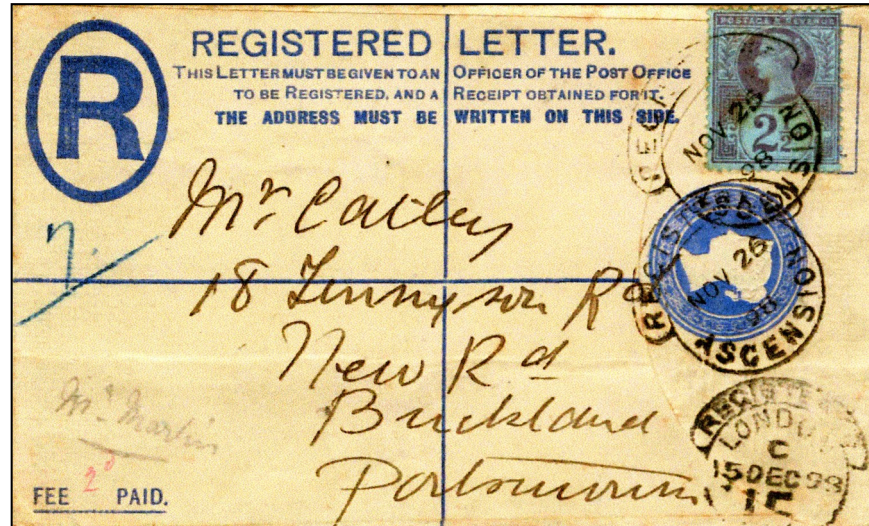 REGISTERED LETTER.
THIS LETTER MUST BE GIVEN TO AN OFFICER OF THE POST OFFICE
TO BE REGISTERED, AND A RECEIPT OBTAINED FOR IT.
THE ADDRESS MUST BE WRITTEN ON THIS SIDE.
R
POSTAGE & REVENUE
2½
NOV 25
98
ASCENSION
REGISTERED
NOV 25
98
ASCENSION
Mr Catley
18 Tennyson Rd
New Rd
Buckland
Portsmouth
Mr. Martin
FEE 2d PAID.
REGISTERED
LONDON
C
15 DEC 98